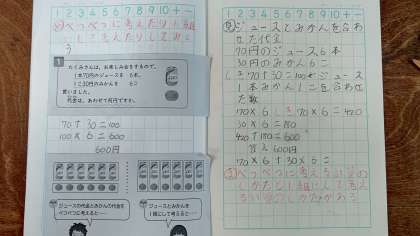 1 2 3 4 5 6 7 8 9 10 + −
べつべつに考えたり1組に
して考えたりしてみよ
う
1
たくみさんは、お楽しみ会をするので、
1本70円のジュースを 6本、
1こ30円のみかんを 6こ
買いました。
代金は、あわせて何円ですか。
70+30=100
100×6=600
600円
ジュースの代金とみかんの代金を
べつべつに考えると……
ジュースとみかんを
1組にして考えると……
1 2 3 4 5 6 7 8 9 10 + −
ジュースとみかんを合わ
せた代金
70円のジュース6本
30円のみかん6こ
70+30=100
ジュース
1本みかん1こを合わせ
た数
70×6
70×6=420
30×6=180
420+180=600
答え600円
70×6+30×6=
べつべつに考える
しかたと1組にして考え
るしかたがある